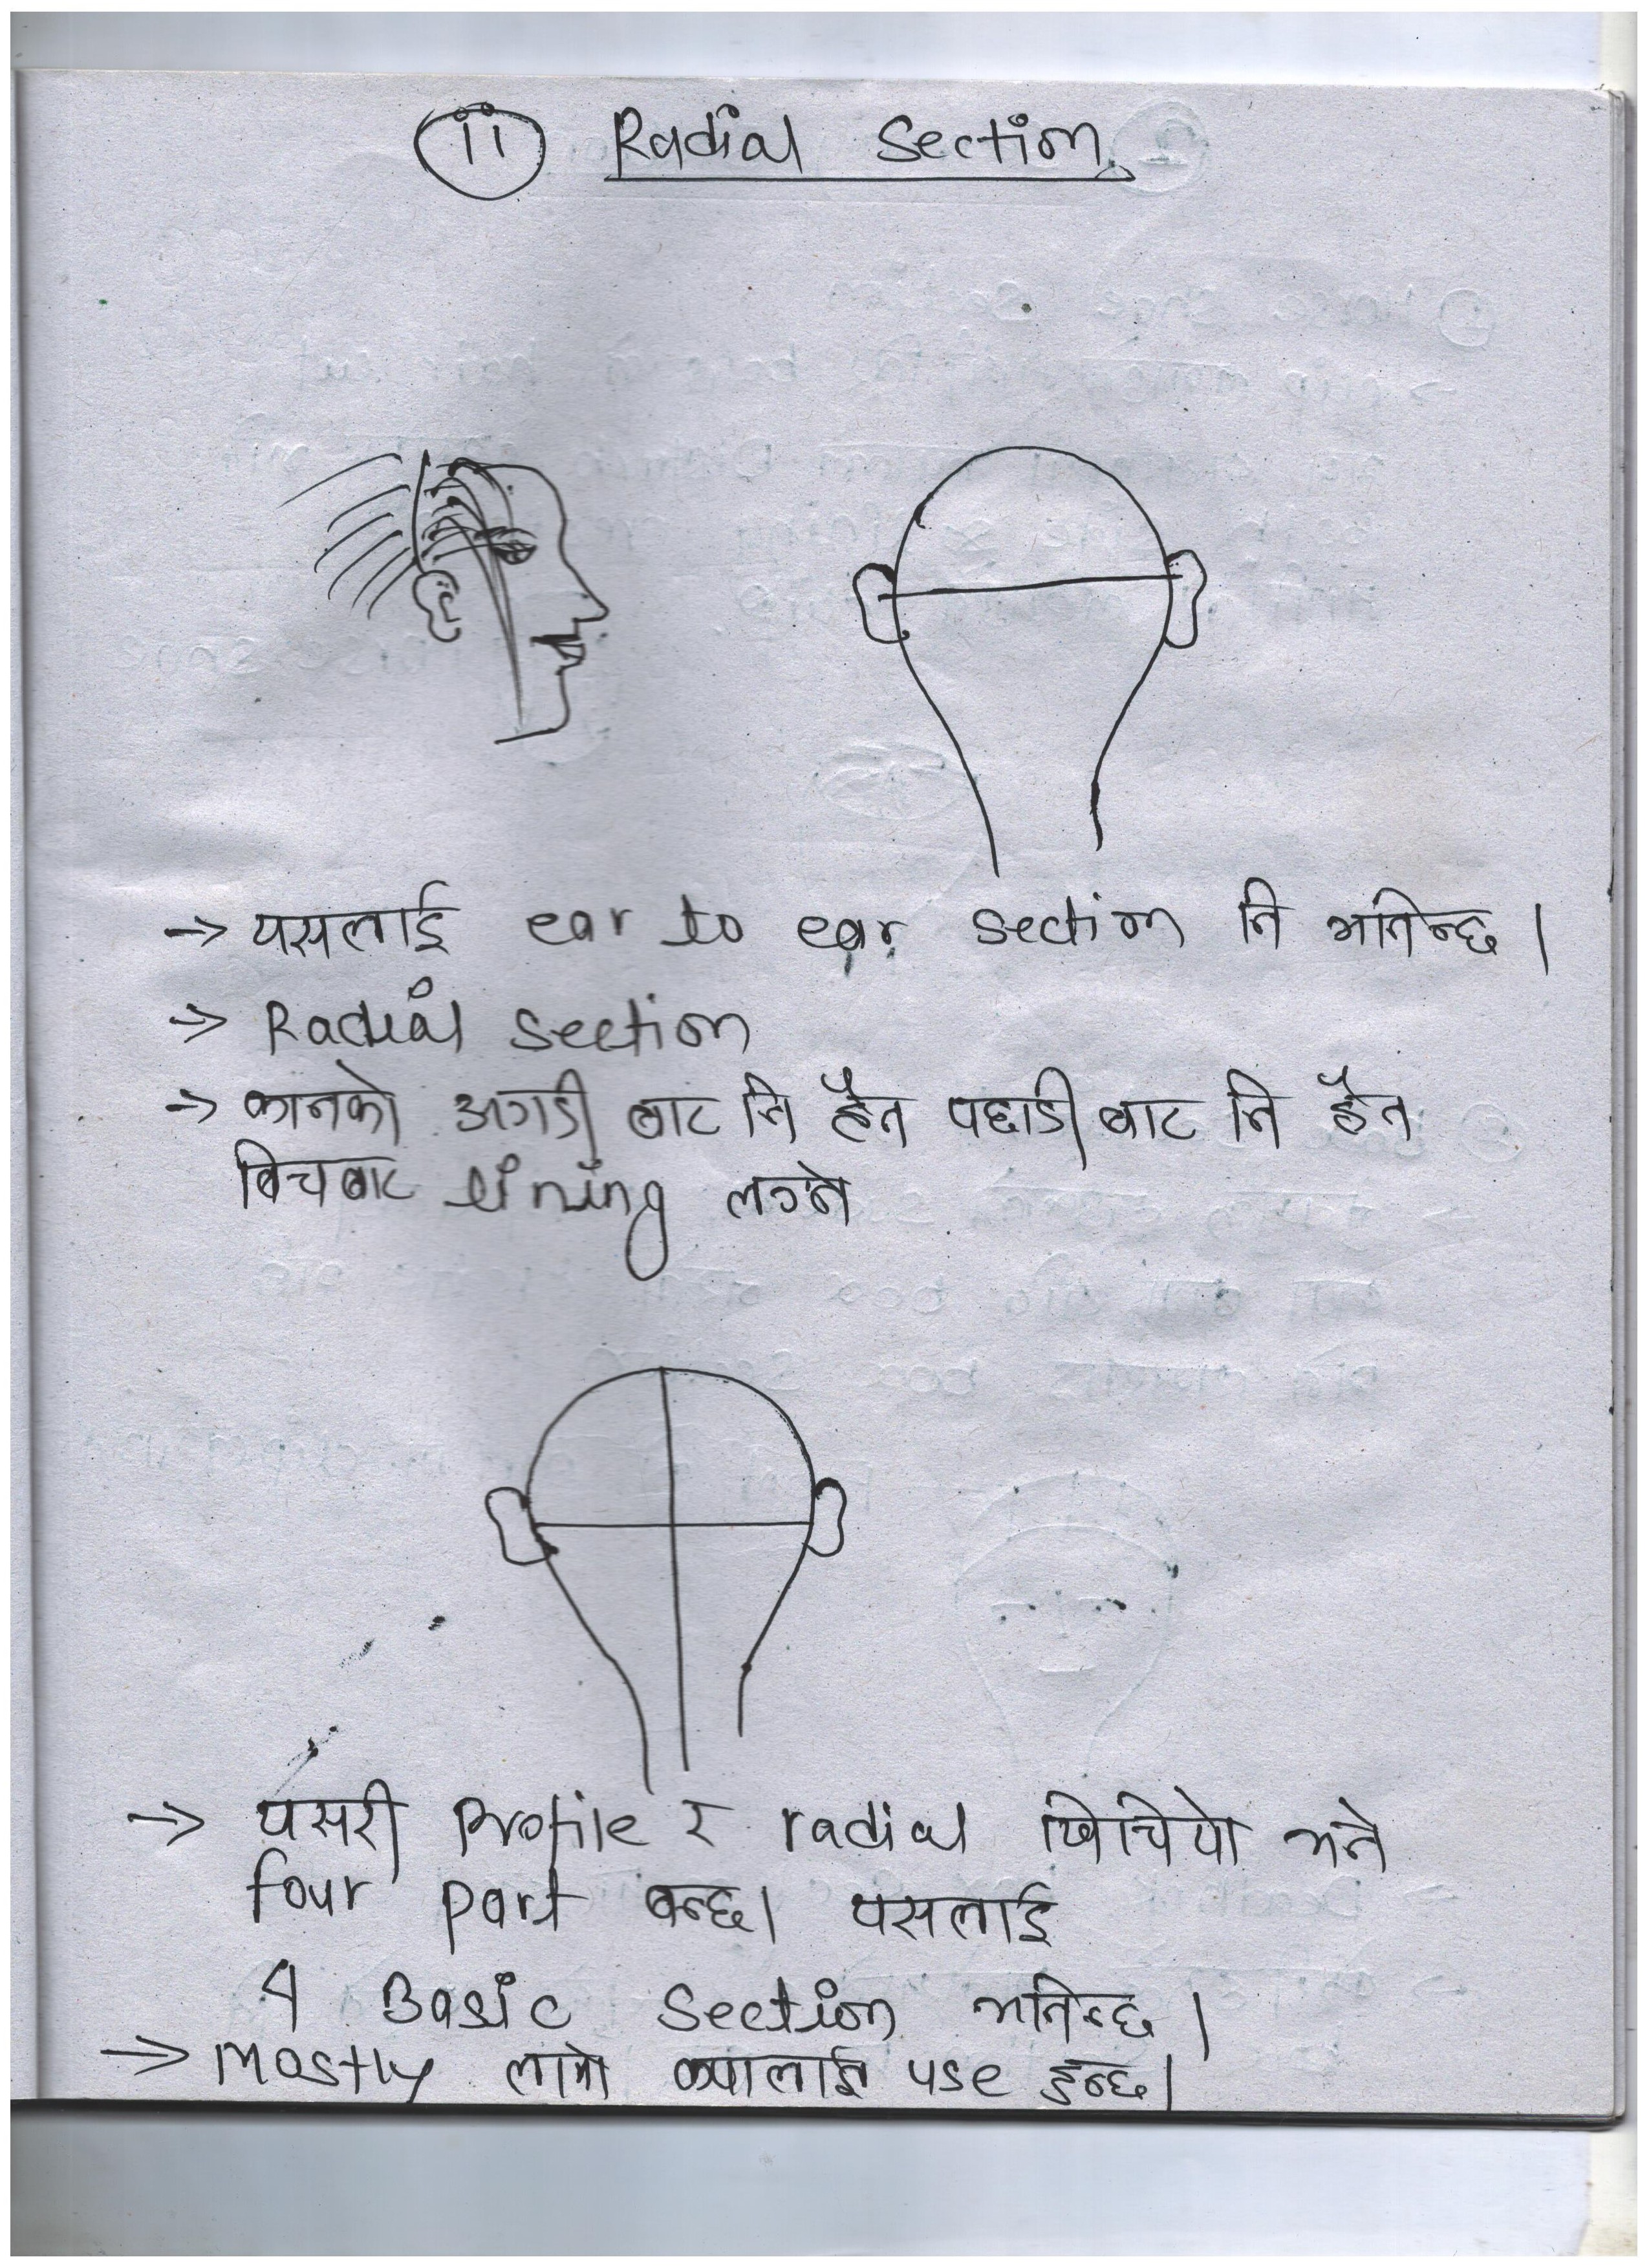 ii Radial Section
→ यसलाई ear to ear section नि भनिन्छ।
→ Radial section
→ कानको अगाडी बाट नि हैन पछाडी बाट नि हैन
बिचबाट lining लग्ने
→ यसरी Profile र radial खिचियो भने
four part बन्छ। यसलाई
4 Basic Section भनिन्छ।
→ Mostly लामो कपालाई use हुन्छ।